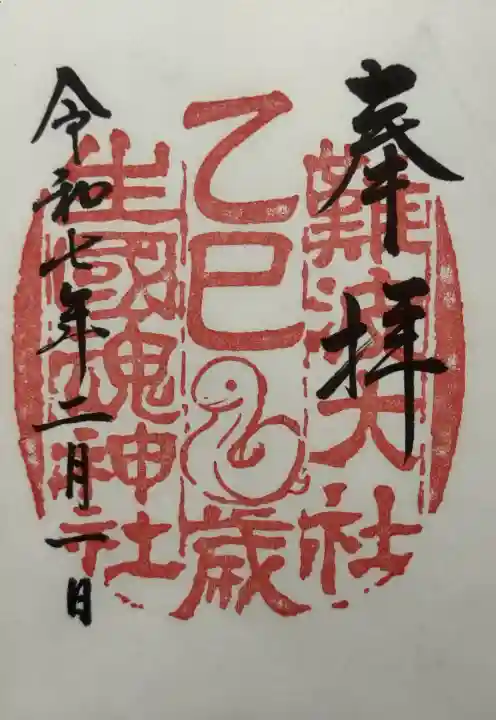 奉拝
難波大社
乙巳歳
生國魂神社
令和七年二月一日